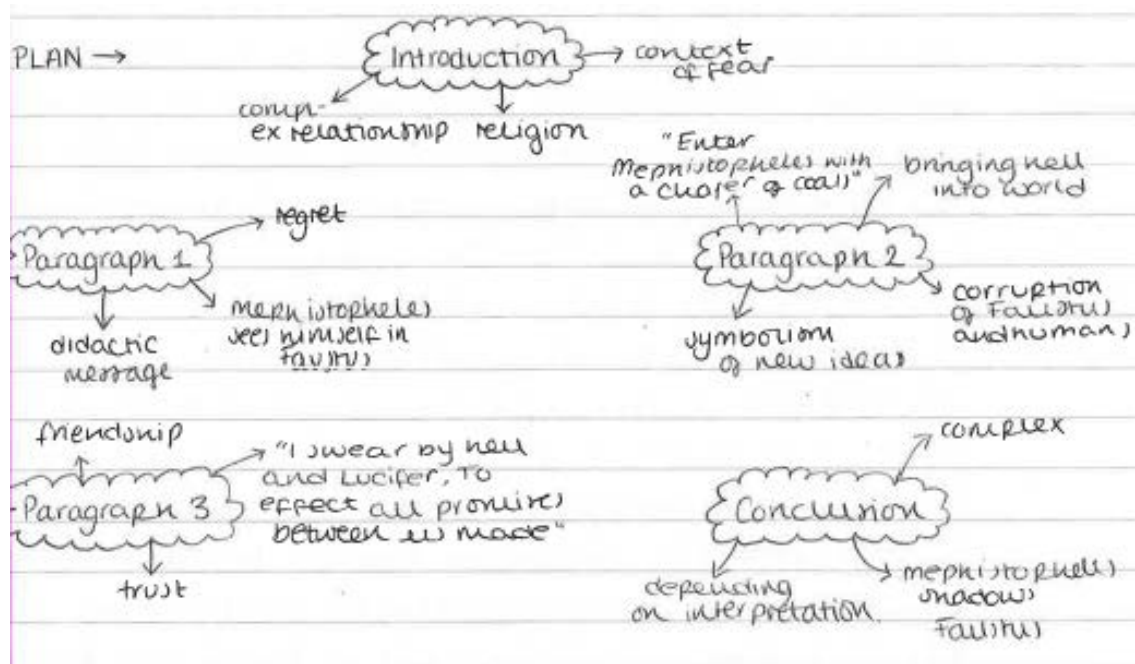 PLAN →
Introduction
context
of fear
compl-
ex relationship
religion
"Enter
Mephistopheles with
a chafer of coals"
bringing hell
into world
Paragraph 1
regret
mephistopheles
sees himself in
faustus
didactic
message
Paragraph 2
corruption
of Faustus
and humans
symbolism
of new ideas
friendship
Paragraph 3
"I swear by hell
and Lucifer, To
effect all promises
between us made"
trust
Conclusion
complex
depending
on interpretation.
mephistopheles
shadows
Faustus